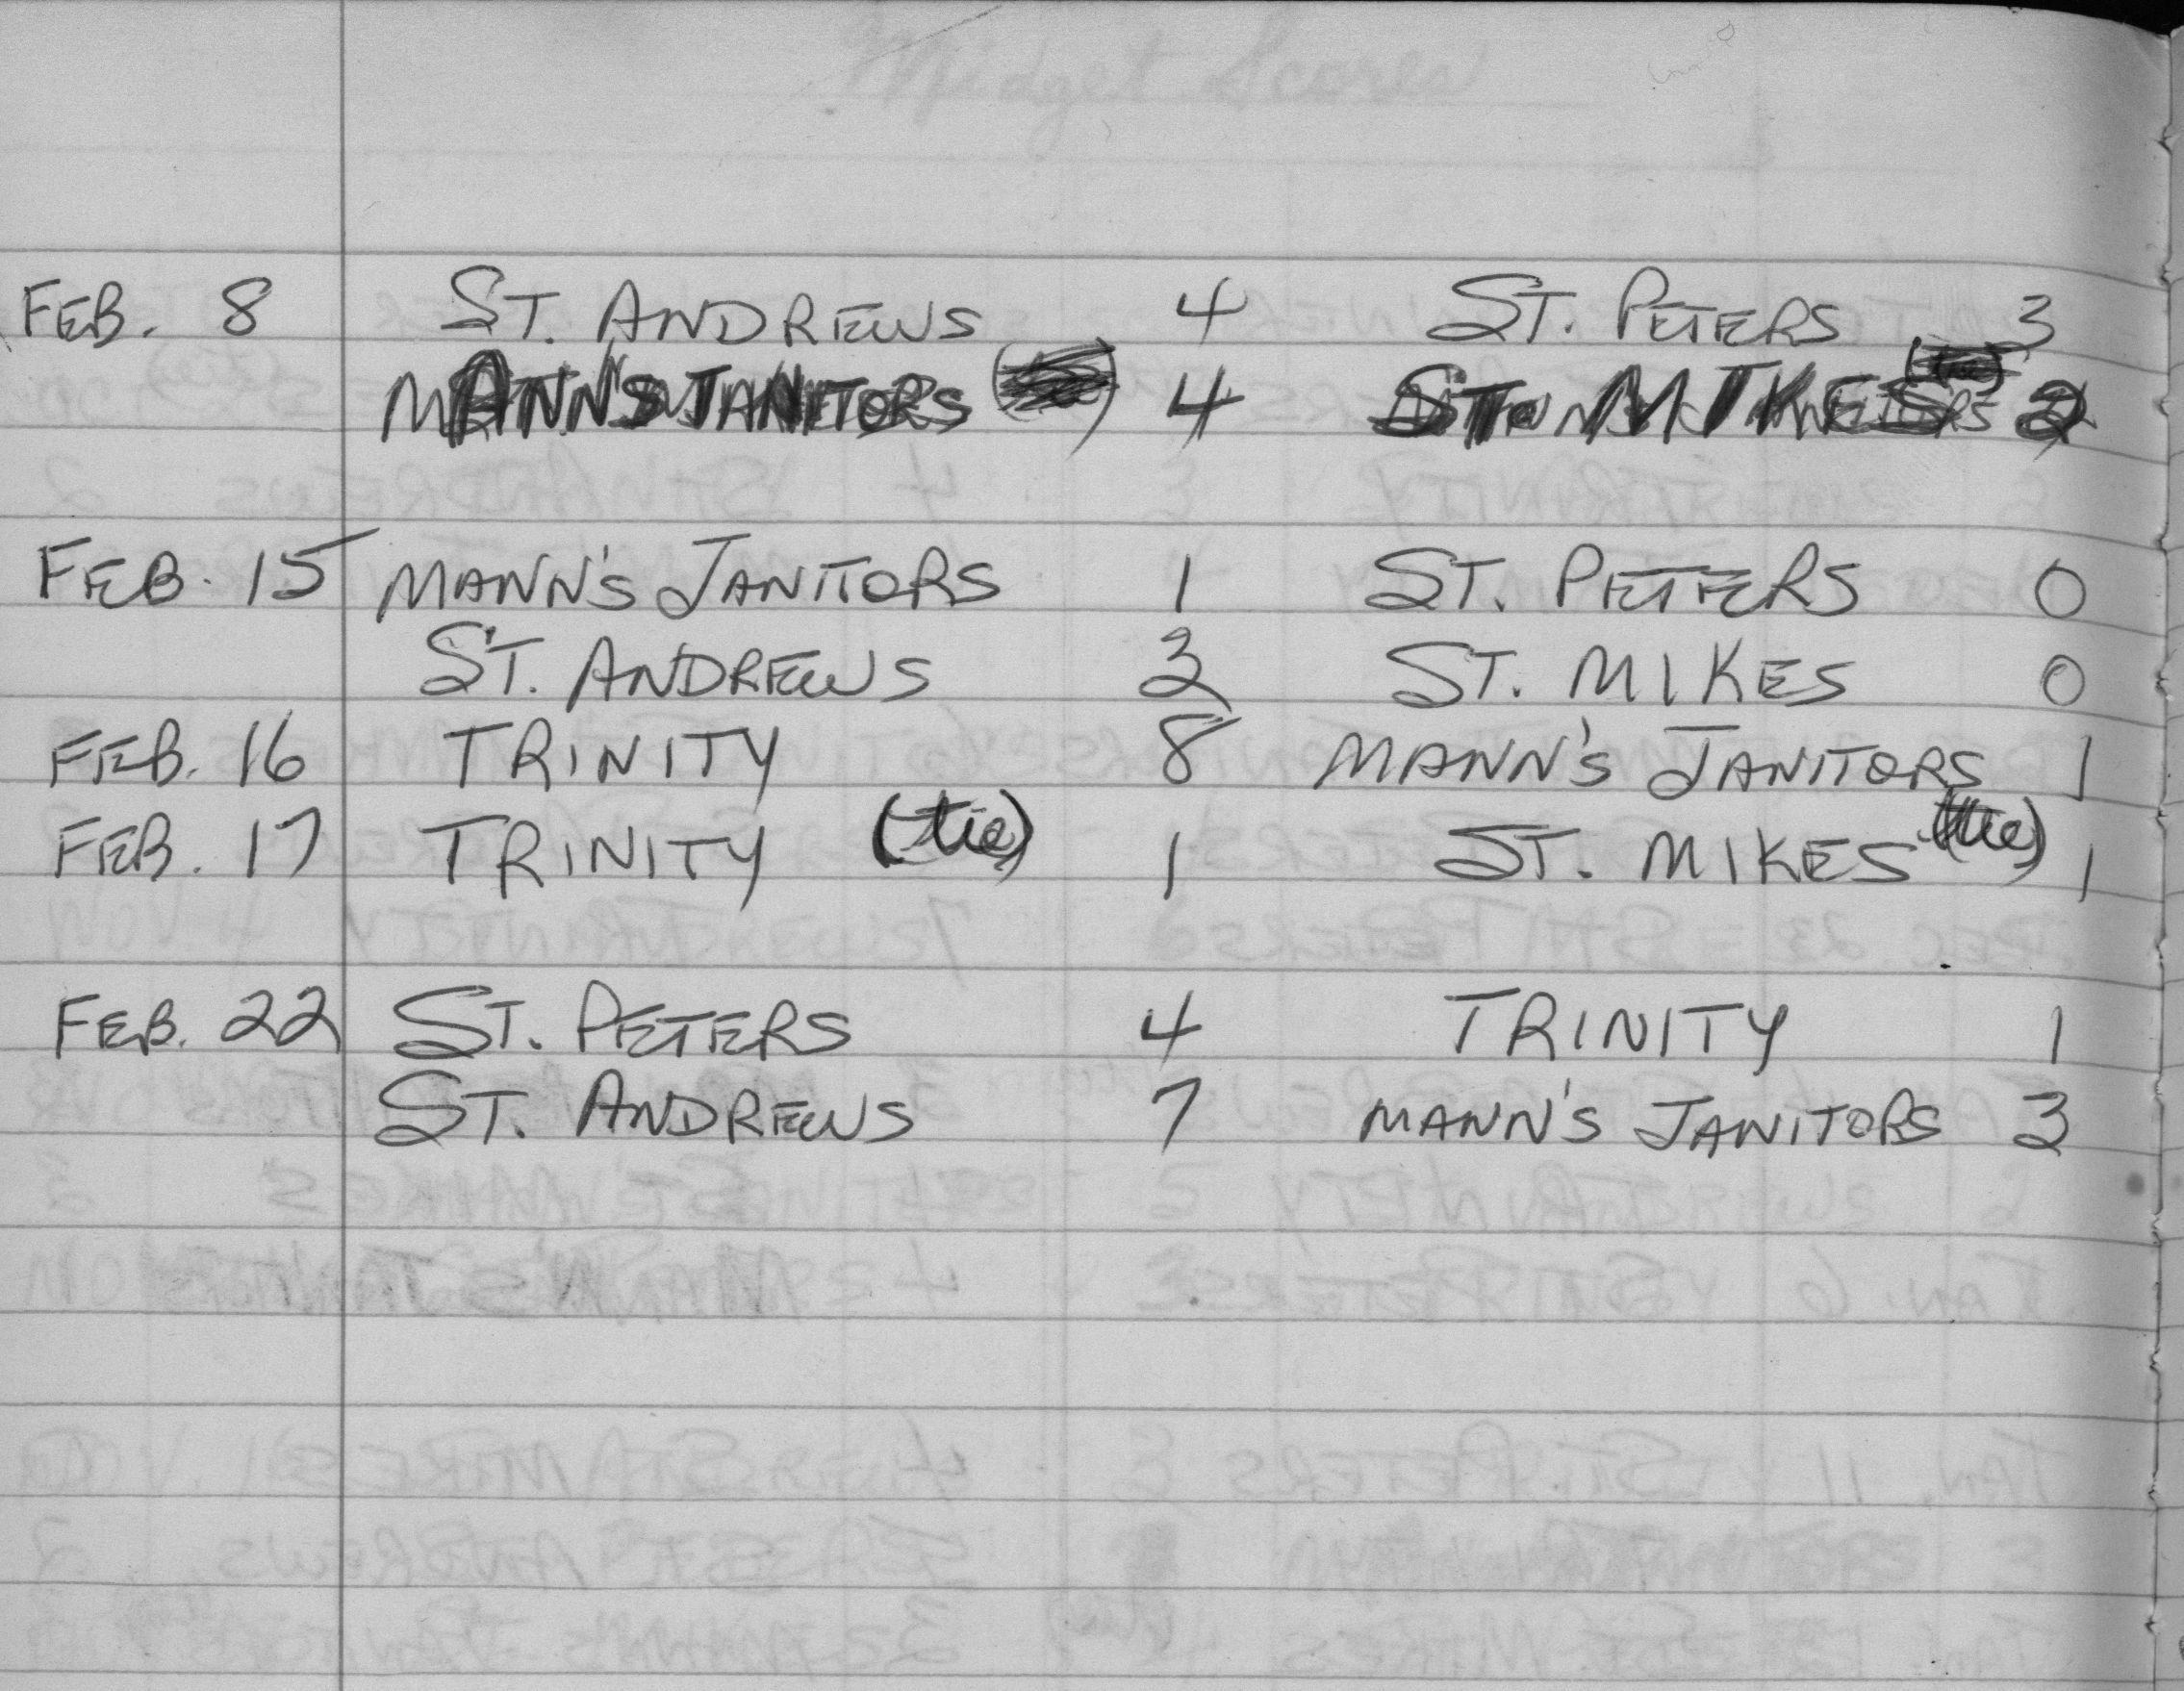 Midget Scores
FEB. 8 ST. ANDREWS 4 ST. PETERS 3
MANN'S JANITORS 4 ST. MIKES 2
FEB. 15 MANN'S JANITORS 1 ST. PETERS 0
ST. ANDREWS 3 ST. MIKES 0
FEB. 16 TRINITY 8 MANN'S JANITORS 1
FEB. 17 TRINITY (tie) 1 ST. MIKES (tie) 1
FEB. 22 ST. PETERS 4 TRINITY 1
ST. ANDREWS 7 MANN'S JANITORS 3